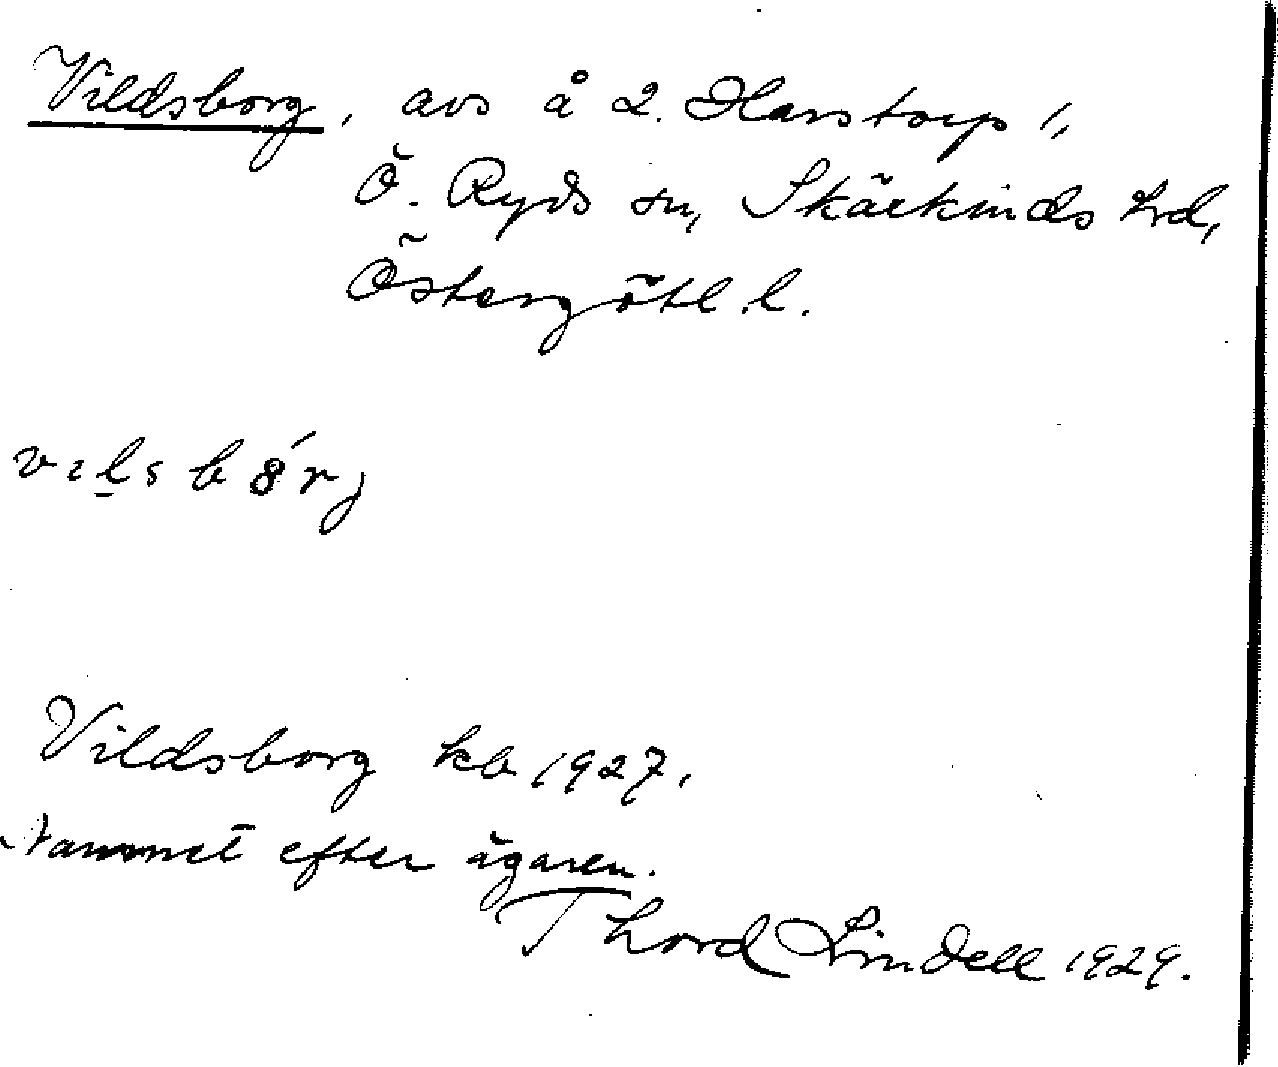 Vildsborg, avs å 2. Harstorp 1,,
Ö. Ryds sn, Skärkinds hrd,
Östergötl. l.
Vildsborg kb 1927.
Namnet efter ägaren.
Thord Lindell 1929.